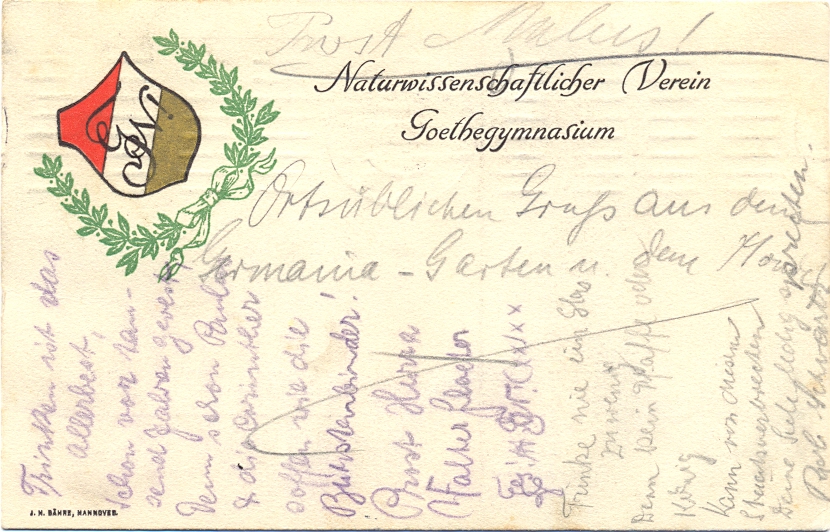 Prost Malus!
Naturwissenschaftlicher Verein
Goethegymnasium
Ortsüblichen Gruß aus dem
Germania-Garten u. dem
Trinken ist das
allerbest,
schon vor tau-
send Jahren gewest
denn schon
& die
soffen wie die
Bürstenbinder!
Prost
Walter
xxx
Trinke nie ein Glas
zu wenig
Denn kein Pfaffe oder
König
Kann von diesem
Staatsverbrechen
Deine Seele ledig sprechen.
J. H. BÄHRE, HANNOVER.